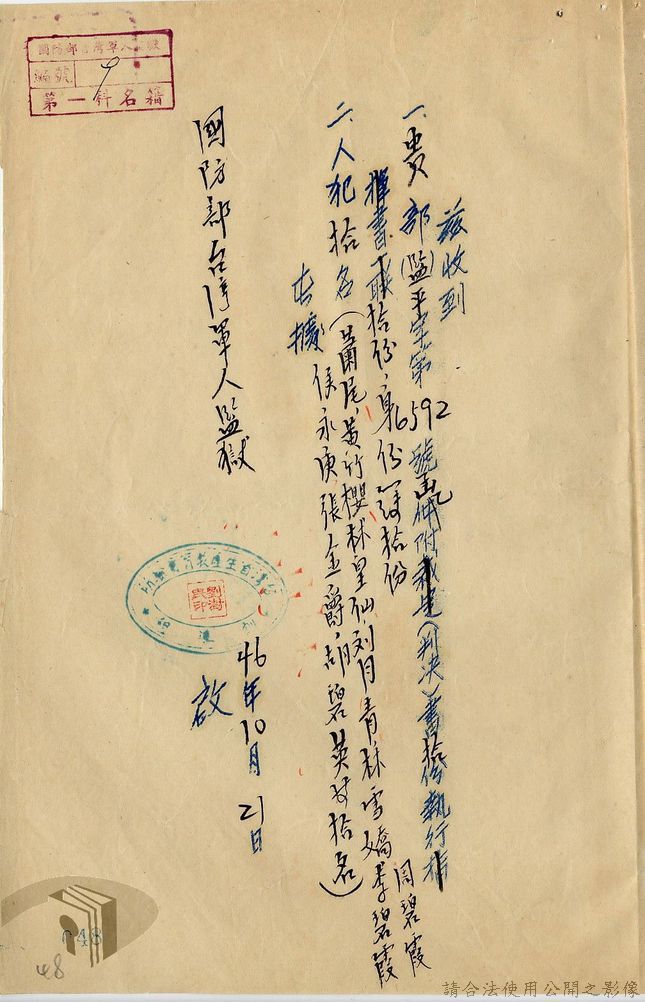 國防部台灣軍人監獄
編號 9
第一科名籍
茲收到
一、貴部(監)平字第6592號函一件附裁定(判決)書拾份執行指
揮書一聯拾份、身份簿拾份
二、人犯拾名(蕭尾、黃竹櫻、林皇仙、刘月青、林雪嬌、李碧霞、周碧霞
侯永庚、張金爵、胡碧英等拾名)
右據
國防部台灣軍人監獄
啟
46年10月21日
048
48
請合法使用公開之影像